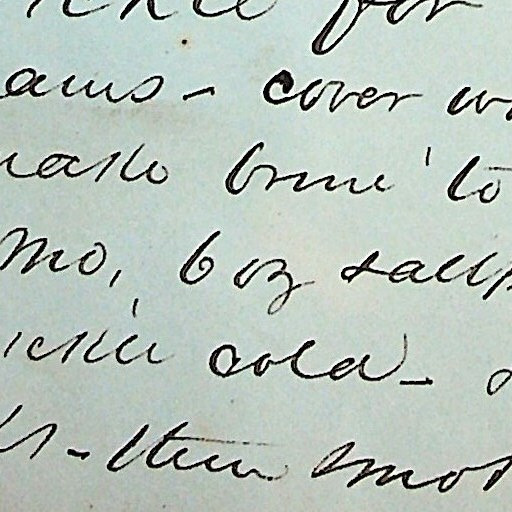 ickle for
ams - cover w
make brine to
mo, 6 oz saltp
ickle cold -
then smo